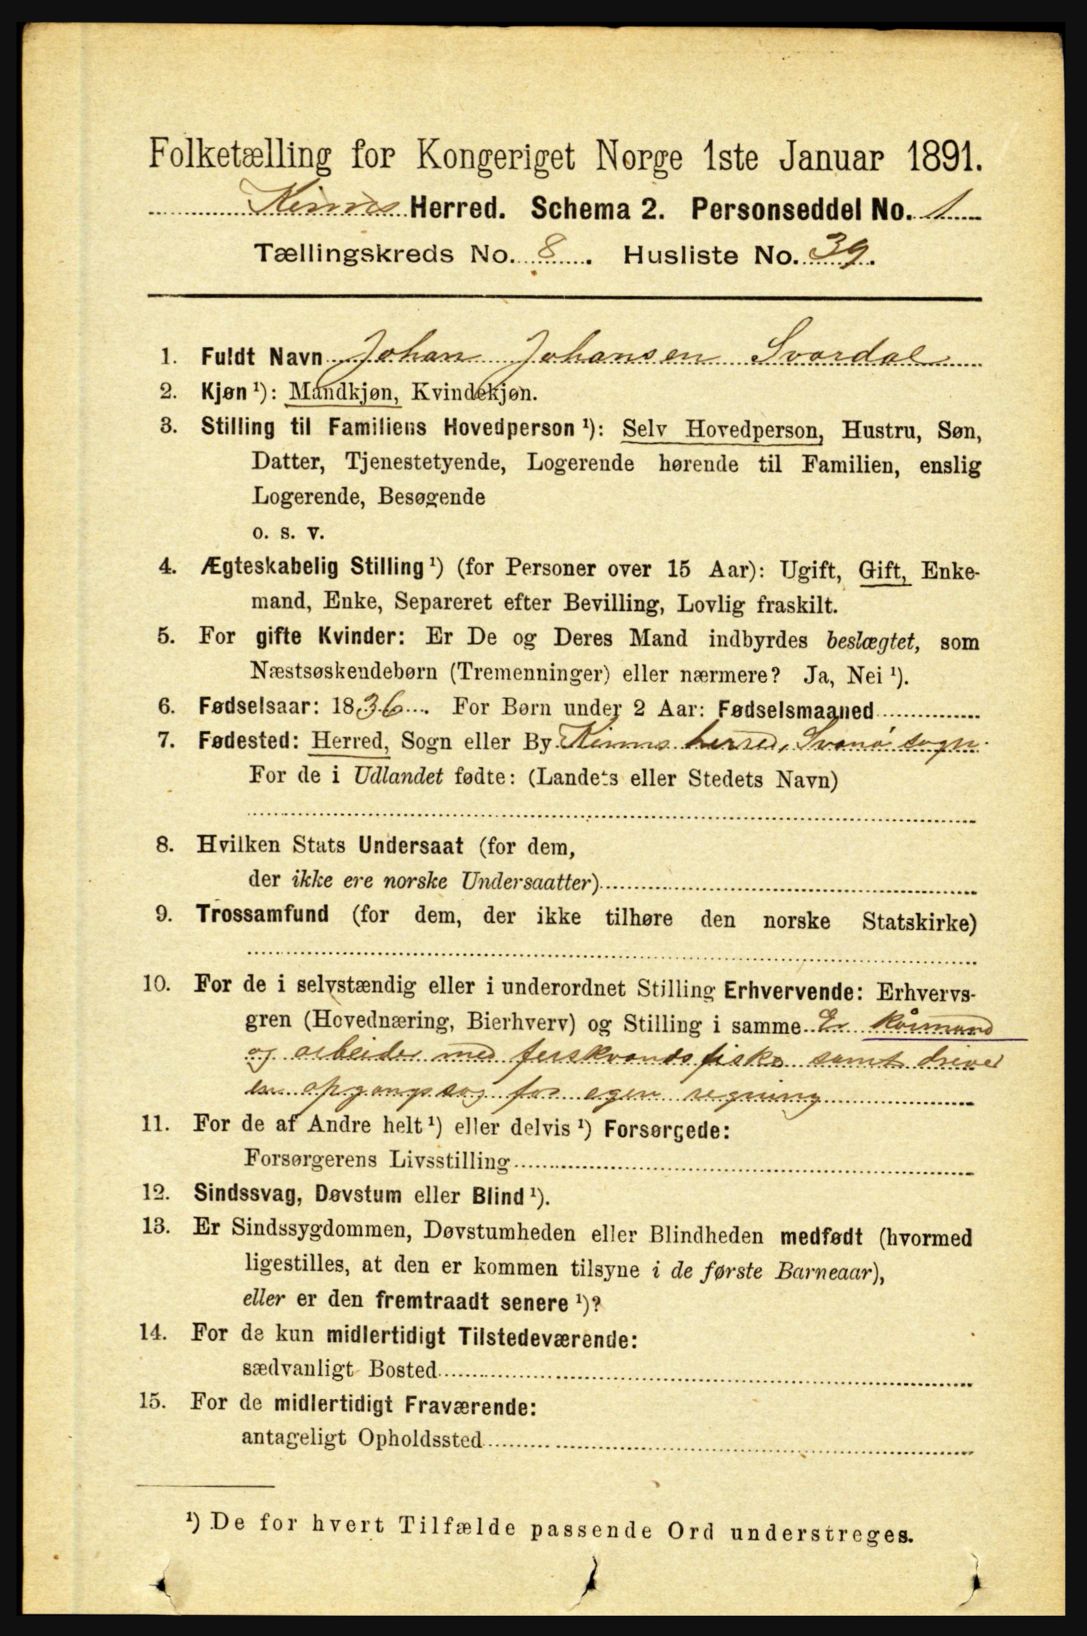 Folketælling for Kongeriget Norge 1ste Januar 1891.
Kinns Herred. Schema 2. Personseddel No. 1
Tællingskreds No. 8. Husliste No. 39.
1. Fuldt Navn Johan Johansen Svardal
2. Kjøn ¹): Mandkjøn, Kvindekjøn.
3. Stilling til Familiens Hovedperson ¹): Selv Hovedperson, Hustru, Søn,
Datter, Tjenestetyende, Logerende hørende til Familien, enslig
Logerende, Besøgende
o. s. v.
4. Ægteskabelig Stilling ¹) (for Personer over 15 Aar): Ugift, Gift, Enke-
mand, Enke, Separeret efter Bevilling, Lovlig fraskilt.
5. For gifte Kvinder: Er De og Deres Mand indbyrdes beslægtet, som
Næstsøskendebørn (Tremenninger) eller nærmere? Ja, Nei ¹).
6. Fødselsaar: 1836. For Børn under 2 Aar: Fødselsmaaned
7. Fødested: Herred, Sogn eller By Kinns herred, Svanø sogn.
For de i Udlandet fødte: (Landets eller Stedets Navn)
8. Hvilken Stats Undersaat (for dem,
der ikke ere norske Undersaatter)
9. Trossamfund (for dem, der ikke tilhøre den norske Statskirke)
10. For de i selvstændig eller i underordnet Stilling Erhvervende: Erhvervs-
gren (Hovednæring, Bierhverv) og Stilling i samme Er kårmand
og arbeider med ferskvands fiske samt driver
en opgangssag for egen regning
11. For de af Andre helt ¹) eller delvis ¹) Forsørgede:
Forsørgerens Livsstilling
12. Sindssvag, Døvstum eller Blind ¹).
13. Er Sindssygdommen, Døvstumheden eller Blindheden medfødt (hvormed
ligestilles, at den er kommen tilsyne i de første Barneaar),
eller er den fremtraadt senere ¹)?
14. For de kun midlertidigt Tilstedeværende:
sædvanligt Bosted
15. For de midlertidigt Fraværende:
antageligt Opholdssted
¹) De for hvert Tilfælde passende Ord understreges.